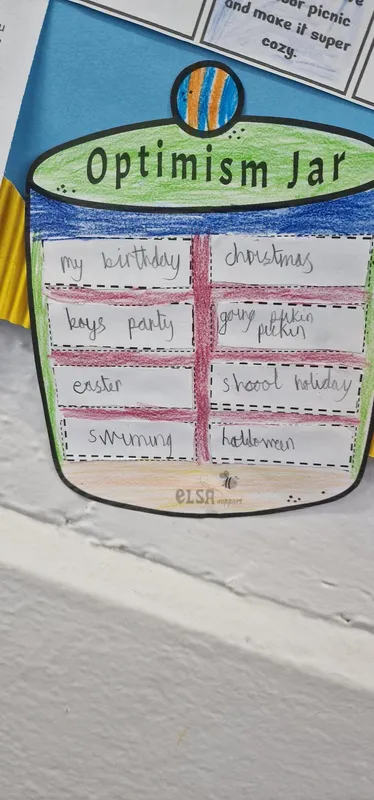 door picnic
and make it super
cozy.
Optimism Jar
my birthday
christmas
boys party
going pukin
puckin
easter
shoool holiday
swiming
halloween
ELSA support